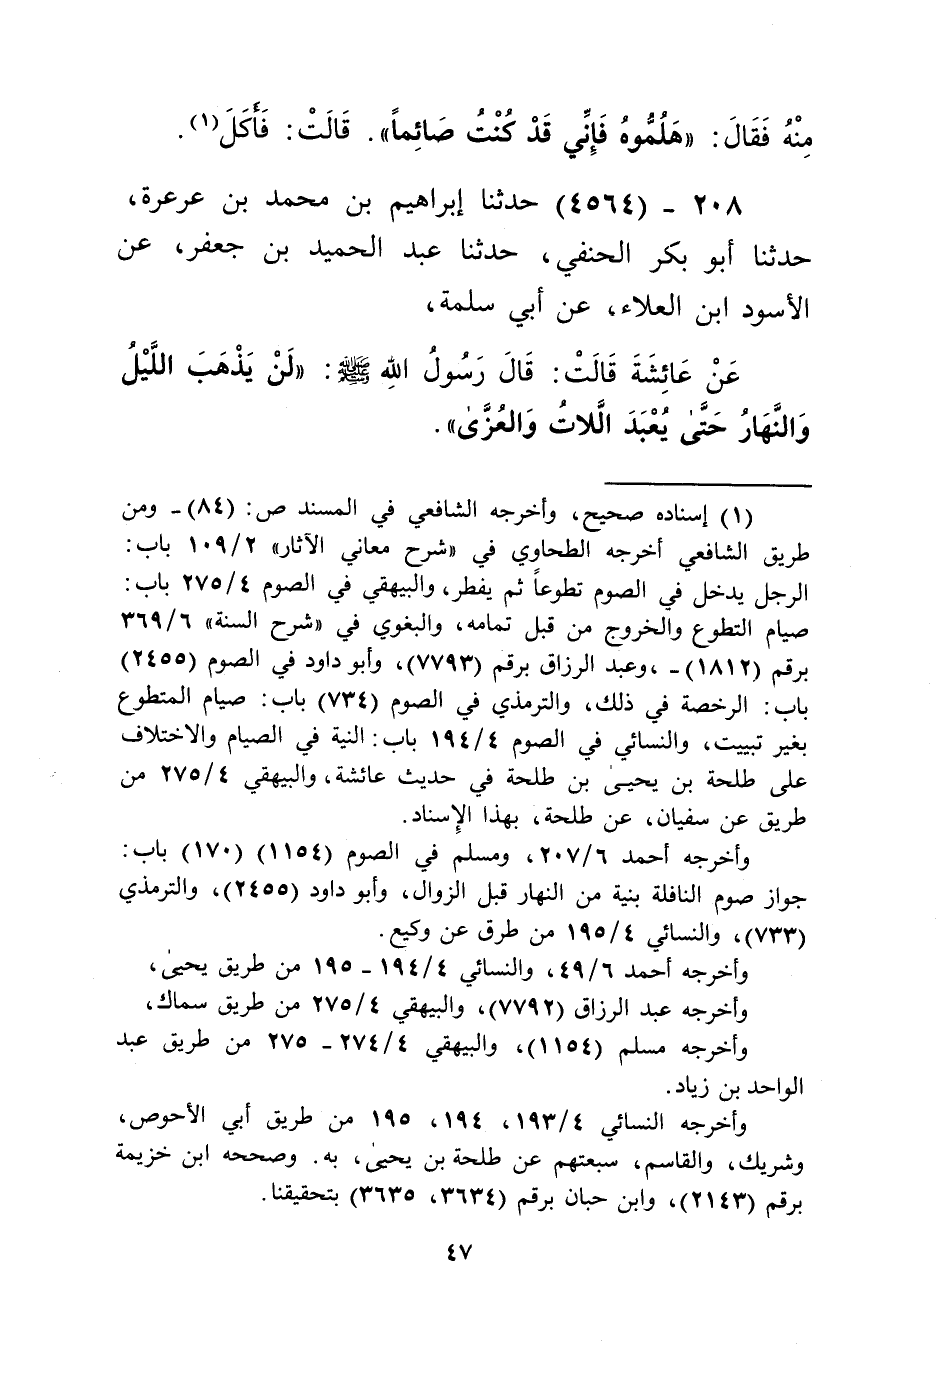 مِنْهُ فَقَالَ: «هَلُمُّوهُ فَإِنِّي قَدْ كُنْتُ صَائِماً». قَالَتْ: فَأَكَلَ(١).
٢٠٨ ـ (٤٥٦٤) حدثنا إبراهيم بن محمد بن عرعرة،
حدثنا أبو بكر الحنفي، حدثنا عبد الحميد بن جعفر، عن
الأسود ابن العلاء، عن أبي سلمة،
عَنْ عَائِشَةَ قَالَتْ: قَالَ رَسُولُ اللهِ ﷺ: «لَنْ يَذْهَبَ اللَّيْلُ
وَالنَّهَارُ حَتَّىٰ يُعْبَدَ الَّلاتُ وَالعُزَّىٰ».
(١) إسناده صحيح، وأخرجه الشافعي في المسند ص: (٨٤) ـ ومن
طريق الشافعي أخرجه الطحاوي في «شرح معاني الآثار» ١٠٩/٢ باب:
الرجل يدخل في الصوم تطوعاً ثم يفطر، والبيهقي في الصوم ٢٧٥/٤ باب:
صيام التطوع والخروج من قبل تمامه، والبغوي في «شرح السنة» ٣٦٩/٦
برقم (١٨١٢) ـ ،وعبد الرزاق برقم (٧٧٩٣)، وأبو داود في الصوم (٢٤٥٥)
باب: الرخصة في ذلك، والترمذي في الصوم (٧٣٤) باب: صيام المتطوع
بغير تبييت، والنسائي في الصوم ١٩٤/٤ باب: النية في الصيام والاختلاف
على طلحة بن يحيىٰ بن طلحة في حديث عائشة، والبيهقي ٢٧٥/٤ من
طريق عن سفيان، عن طلحة، بهذا الإسناد.
وأخرجه أحمد ٢٠٧/٦، ومسلم في الصوم (١١٥٤) (١٧٠) باب:
جواز صوم النافلة بنية من النهار قبل الزوال، وأبو داود (٢٤٥٥)، والترمذي
(٧٣٣)، والنسائي ١٩٥/٤ من طرق عن وكيع.
وأخرجه أحمد ٤٩/٦، والنسائي ١٩٤/٤ ـ ١٩٥ من طريق يحيىٰ،
وأخرجه عبد الرزاق (٧٧٩٢)، والبيهقي ٢٧٥/٤ من طريق سماك،
وأخرجه مسلم (١١٥٤)، والبيهقي ٢٧٤/٤ ـ ٢٧٥ من طريق عبد
الواحد بن زياد.
وأخرجه النسائي ١٩٣/٤، ١٩٤، ١٩٥ من طريق أبي الأحوص،
وشريك، والقاسم، سبعتهم عن طلحة بن يحيىٰ، به. وصححه ابن خزيمة
برقم (٢١٤٣)، وابن حبان برقم (٣٦٣٤، ٣٦٣٥) بتحقيقنا.
٤٧